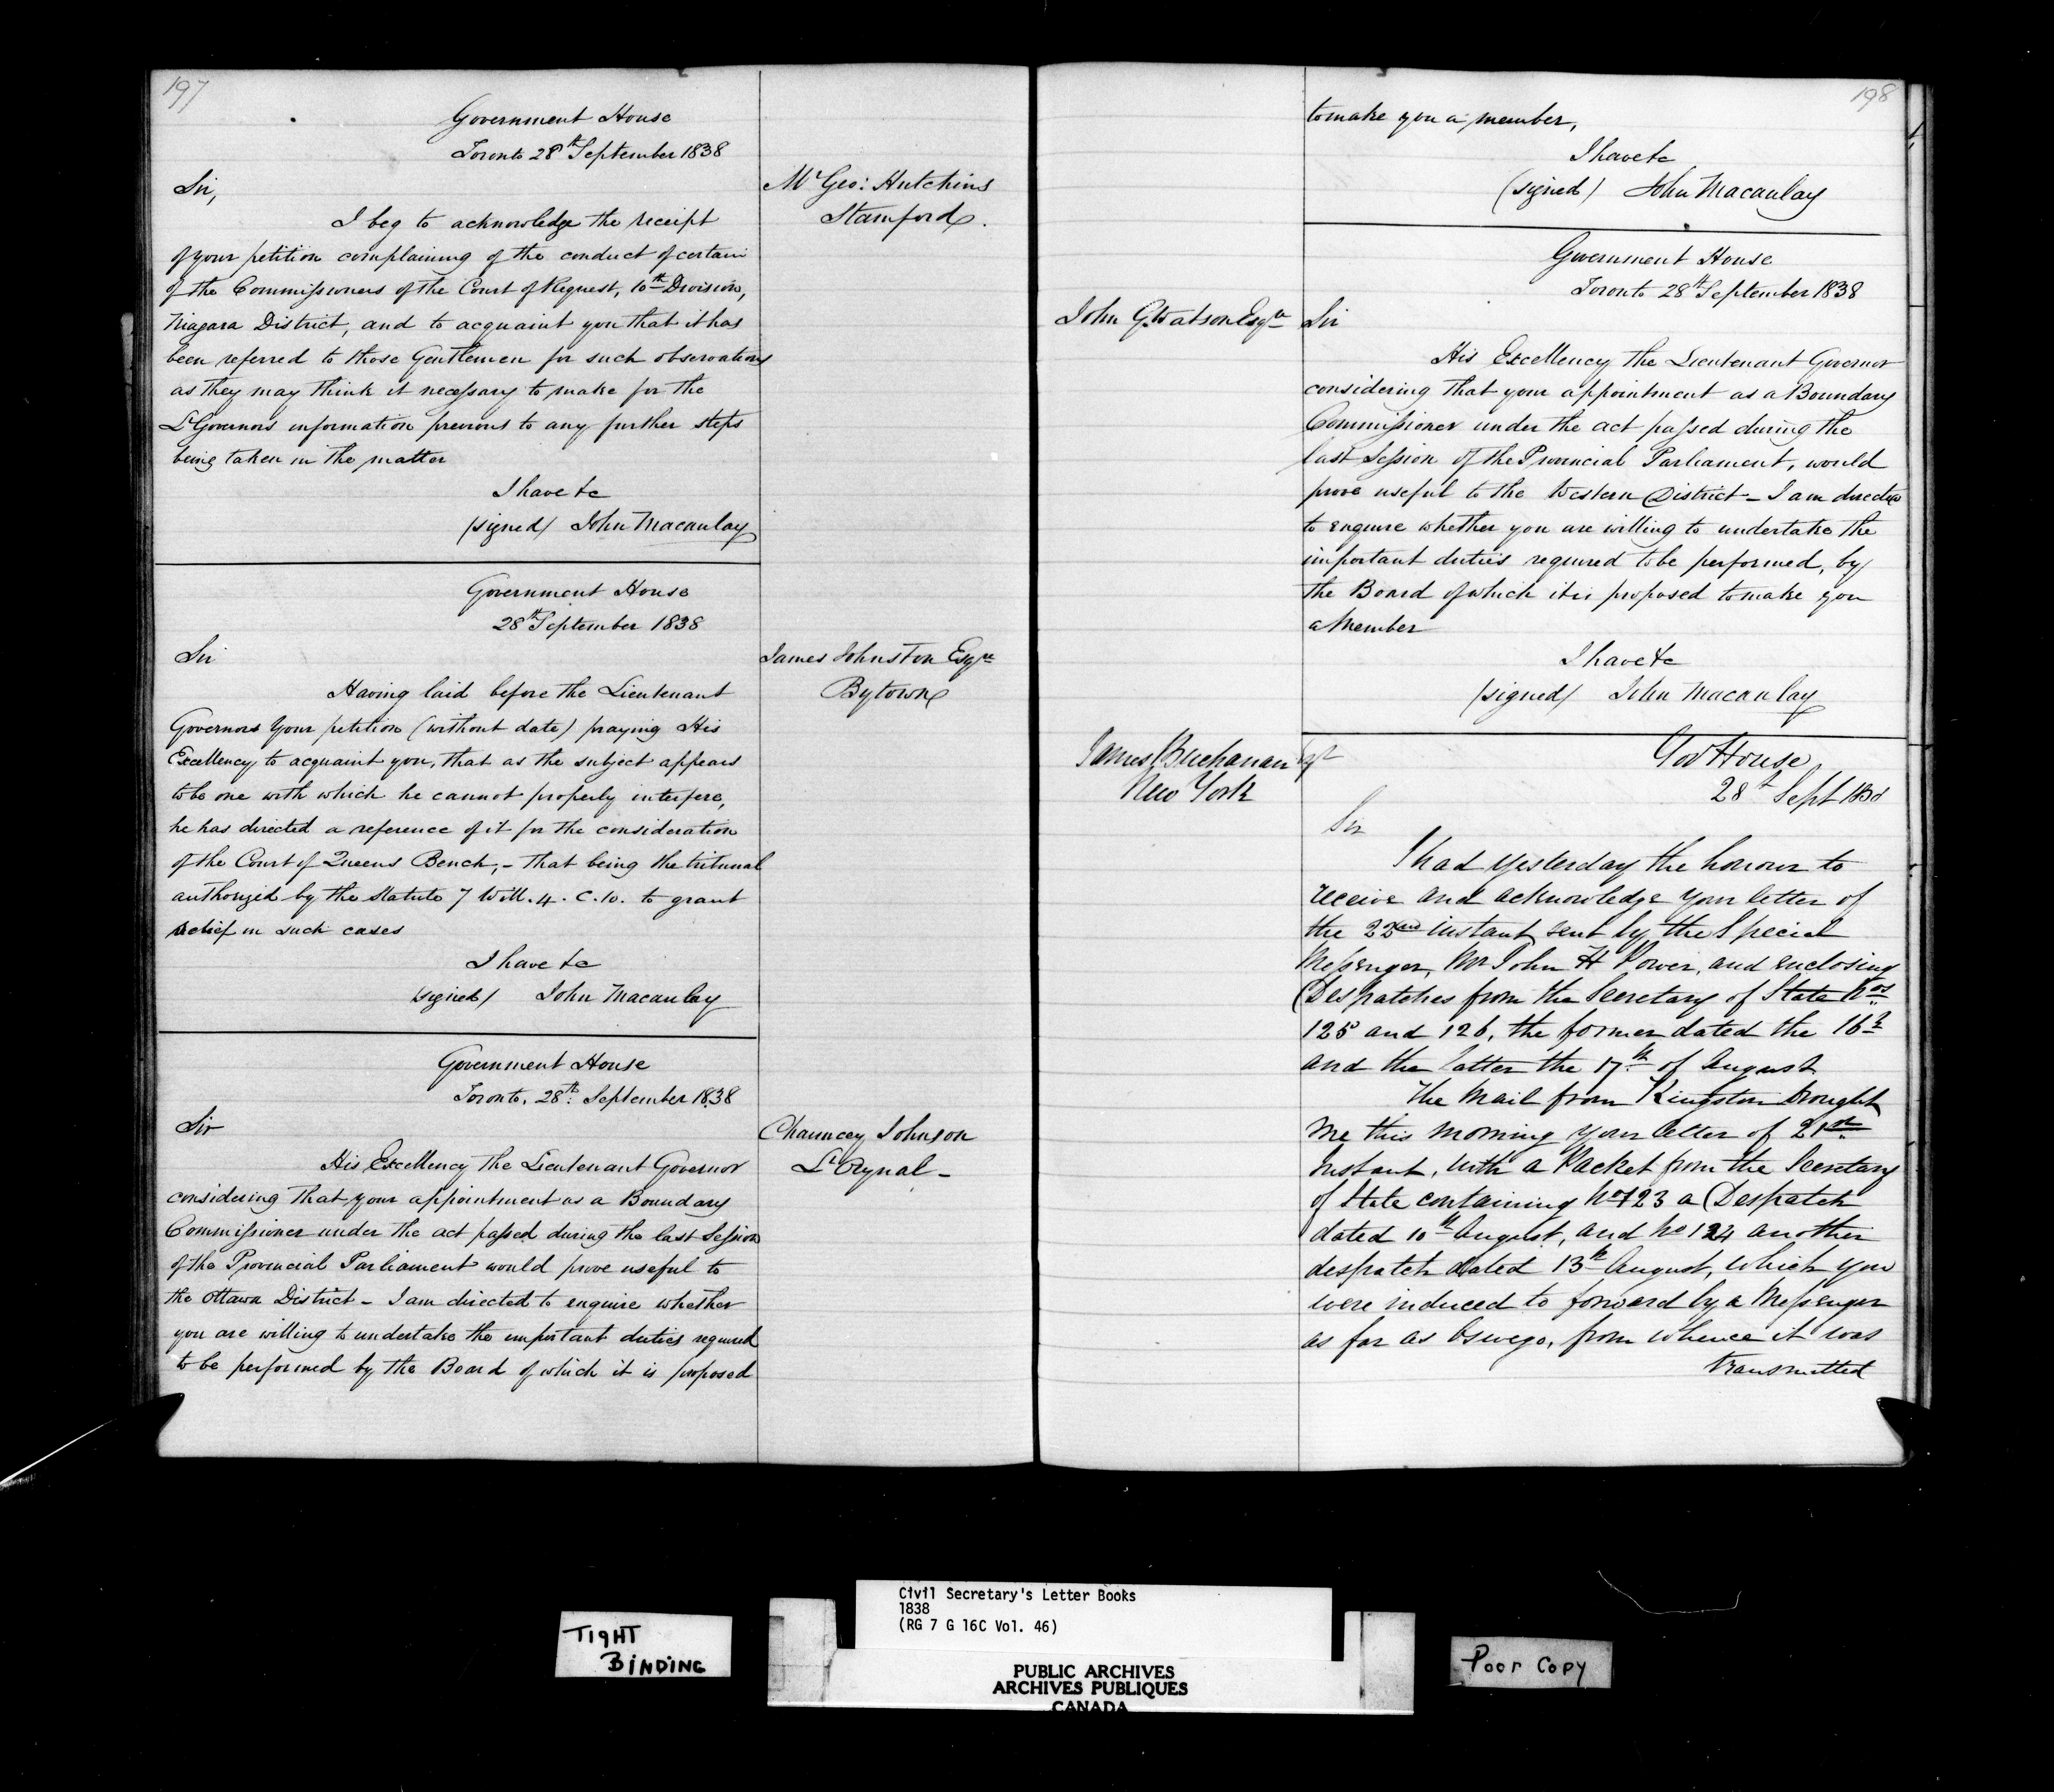 197
Government House
Toronto 28th September 1838
Mr Geo: Hutchins
Stamford.
Sir,
I beg to acknowledge the receipt
of your petition complaining of the conduct of certain
of the Commissioners of the Court of Request, 10th Division,
Niagara District, and to acquaint you that it has
been referred to those Gentlemen for such observations
as they may think it necessary to make for the
Lt Governors information previous to any further steps
being taken in the matter
I have &c
(signed) John Macaulay
Government House
28th September 1838
James Johnston Esqre
Bytown
Sir
Having laid before the Lieutenant
Governors Your petition (without date) praying His
Excellency to acquaint you, that as the subject appears
to be one with which he cannot properly interfere,
he has directed a reference of it for the consideration
of the Court of Queens Bench, - that being the tribunal
authorized by the Statute 7 Will. 4. C. 10. to grant
relief in such cases
I have &c
(signed) John Macaulay
Government House
Toronto. 28th September 1838
Chauncey Johnson
L'Orignal -
Sir
His Excellency the Lieutenant Governor
considering that your appointment as a Boundary
Commissioner under the act passed during the last Session
of the Provincial Parliament would prove useful to
the Ottawa District - I am directed to enquire whether
you are willing to undertake the important duties required
to be performed by the Board of which it is proposed
198
to make you a member,
I have &c
(signed) John Macaulay
Government House
Toronto 28th September 1838
John G. Watson Esqre
Sir
His Excellency the Lieutenant Governor
considering that your appointment as a Boundary
Commissioner under the act passed during the
last Session of the Provincial Parliament, would
prove useful to the Western District - I am directed
to enquire whether you are willing to undertake the
important duties required to be performed, by
the Board of which it is proposed to make you
a Member
I have &c
(signed) John Macaulay
James Buchanan Esqr
New York
Gov House
28th Sept 1838
Sir
I had yesterday the honour to
receive and acknowledge your letter of
the 22nd instant, sent by the Special
Messenger, Mr John H Power, and enclosing
Despatches from the Secretary of State Nos
125 and 126, the former dated the 16th
and the latter the 17th of August.
The Mail from Kingston brought
me this morning your letter of 21st
Instant, with a Packet from the Secretary
of State containing No 123 a Despatch
dated 10th August, and No 124 another
despatch dated 13th August, which you
were induced to forward by a Messenger
as far as Oswego, from whence it was
transmitted
TIGHT
BINDING
Civil Secretary's Letter Books
1838
(RG 7 G 16C Vol. 46)
PUBLIC ARCHIVES
ARCHIVES PUBLIQUES
CANADA
Poor Copy